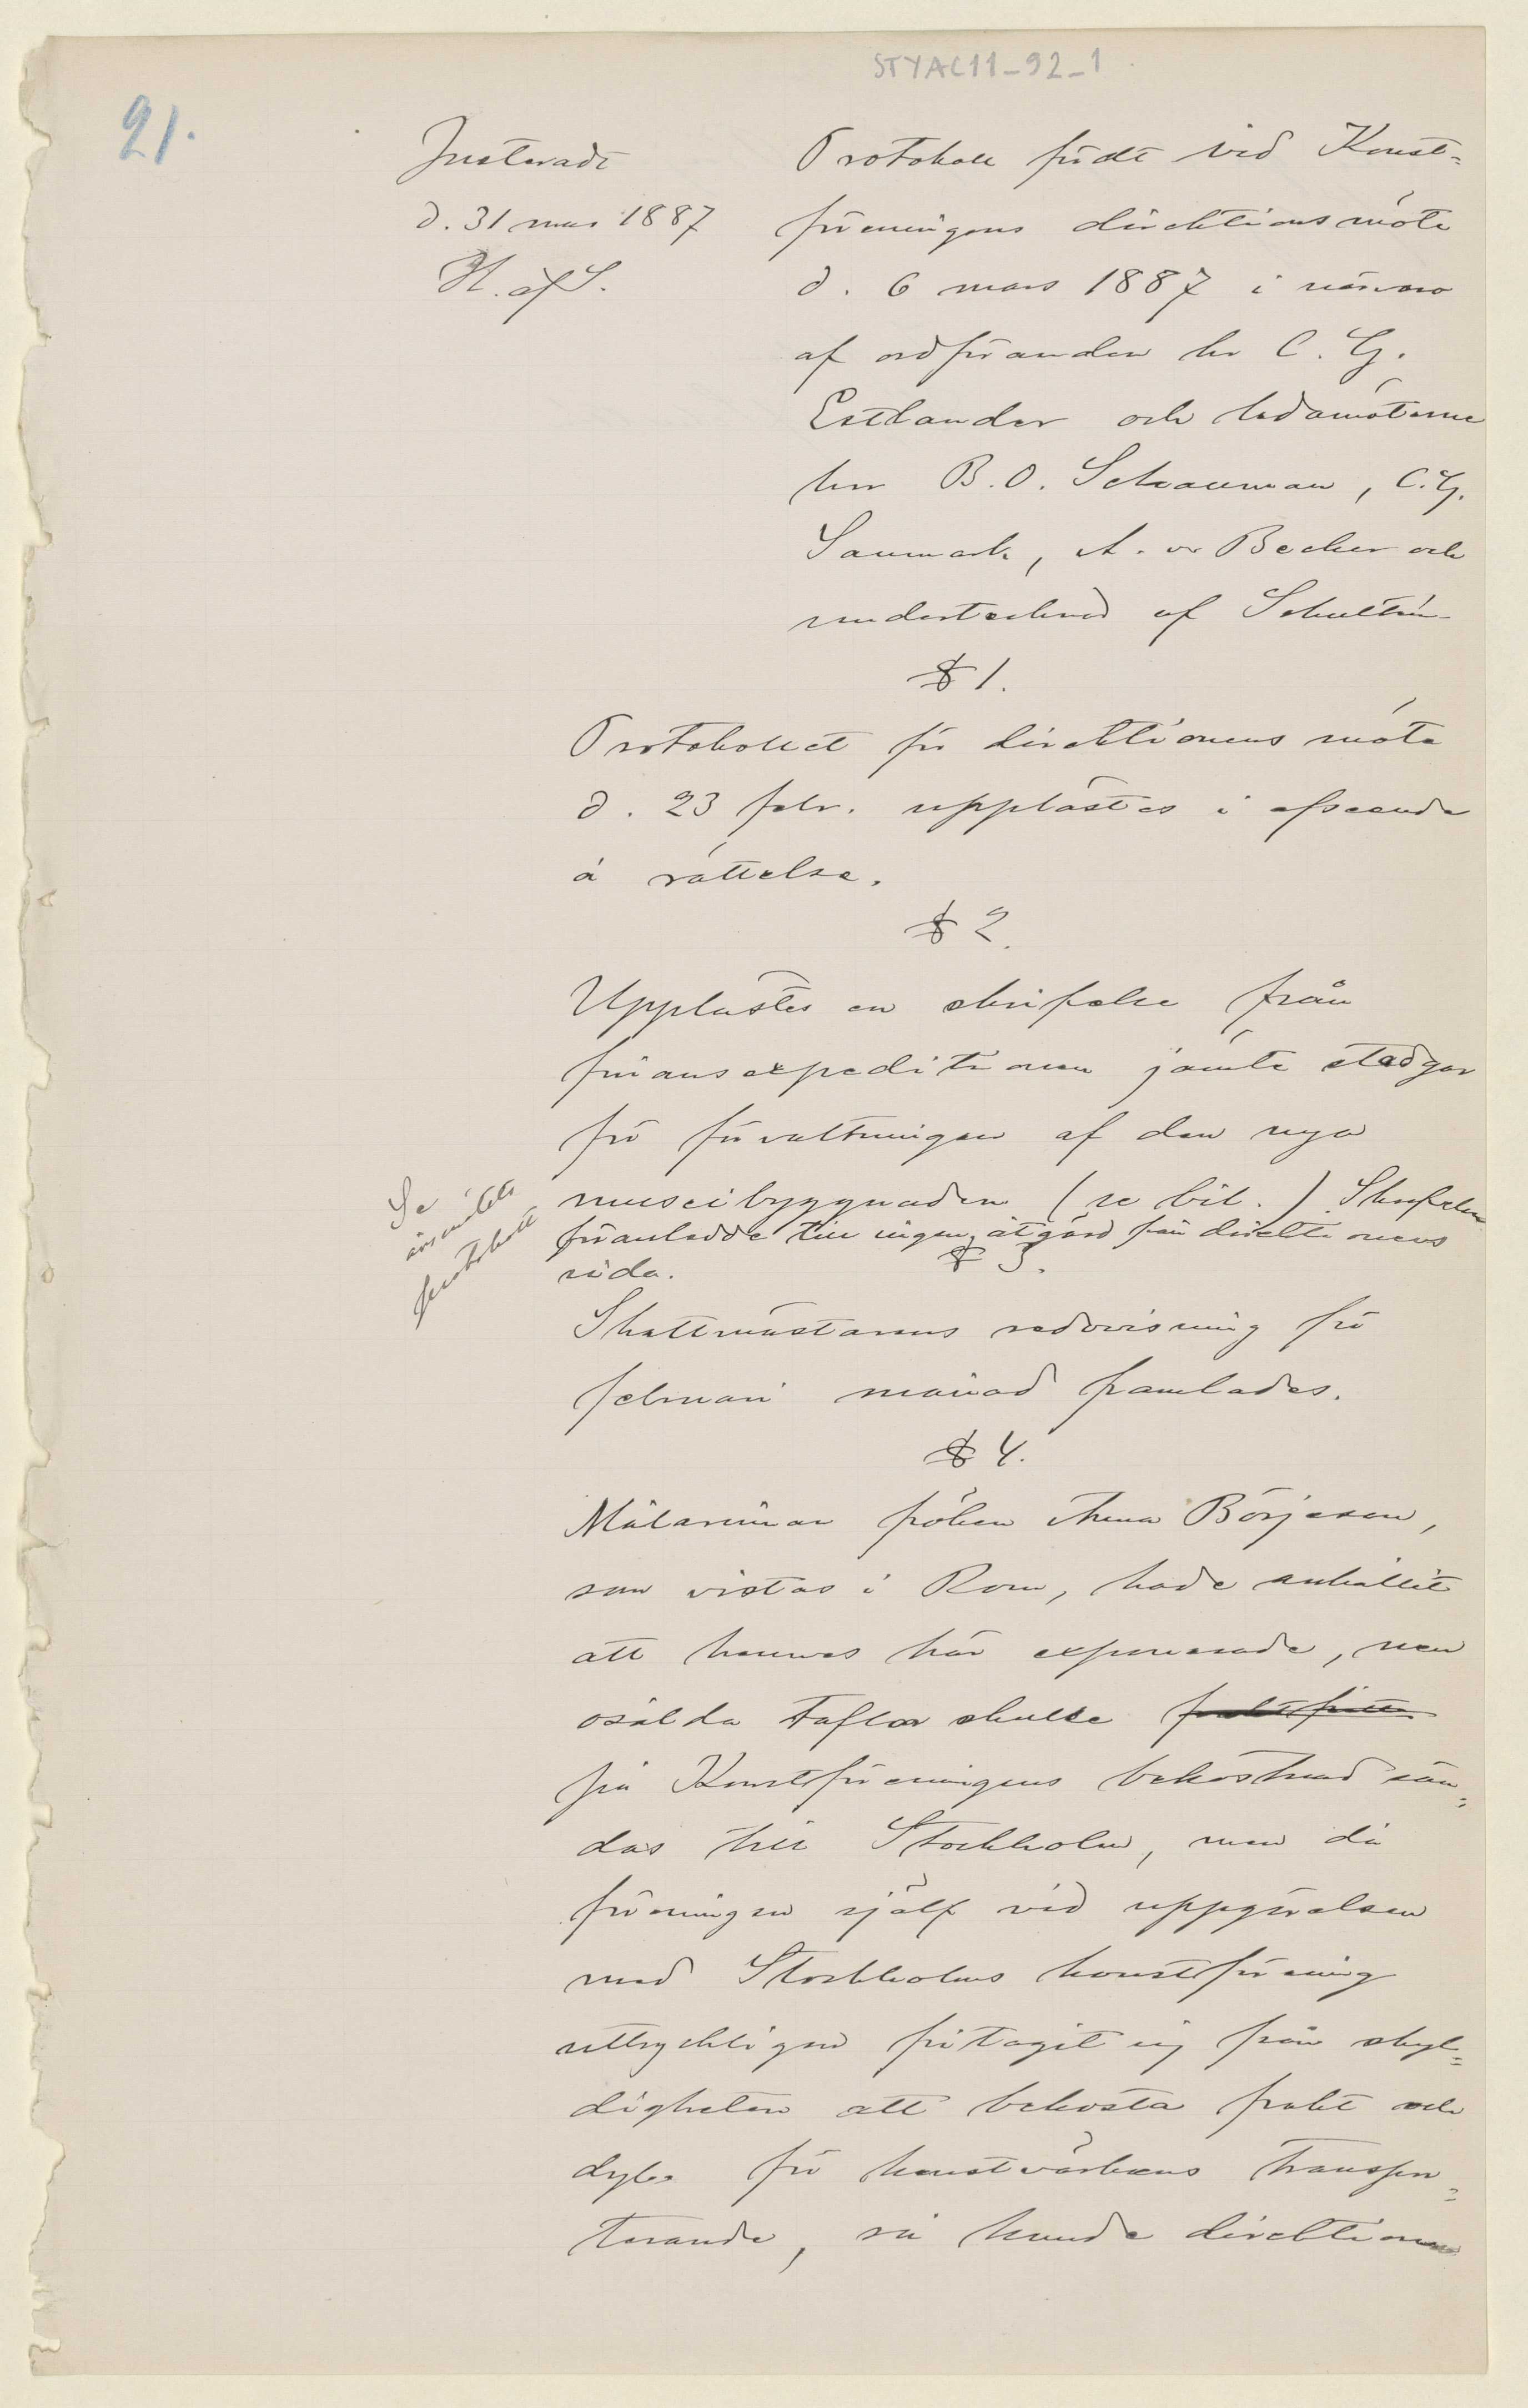 STYAC11_92_1
21.
Justeradt
d. 31 mars 1887
H. af S.
Protokoll fördt vid Konst=
föreningens direktionsmöte
d. 6 mars 1887 i närvaro
af ordföranden hr C. G.
Estlander och ledamöterne
hrr B. O. Schauman, C. G.
Sanmark, A. v. Becker och
undertecknad af Schultén
§ 1.
Protokollet för direktionens möte
d. 23 febr. upplästes i afseende
å rättelse.
§ 2.
Upplästes en skrifvelse från
finansexpeditionen jämte stadgar
för förvaltningen af den nya
museibyggnaden (se bil.) Skrifvelsen
föranledde till ingen åtgärd från direktionens
sida.
Se
årsmötets
protokoll
§ 3.
Skattmästarens redovisning för
februari månad framlades.
§ 4.
Målarinnan fröken Anna Börjeson,
som vistas i Rom, hade anhållit
att hennes här exponerade, men
osålda taflor skulle
på Konstföreningens bekostnad sän=
das till Stockholm, men då
föreningen själf vid uppgörelsen
med Stockholms konstförening
uttryckligen fritagit sig från skyl=
digheten att bekosta frakt och
dyl. för konstvärkens transpor=
terande, så kunde direktionen